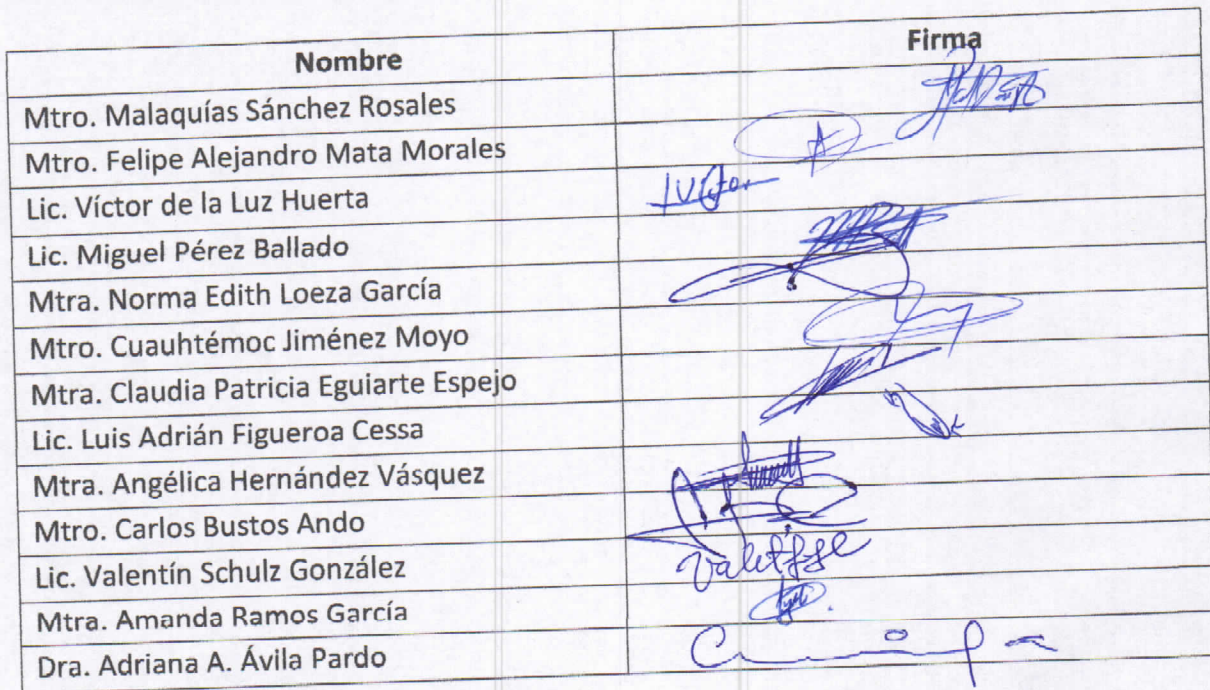 Nombre Firma
Mtro. Malaquías Sánchez Rosales
Mtro. Felipe Alejandro Mata Morales
Lic. Víctor de la Luz Huerta
Lic. Miguel Pérez Ballado
Mtra. Norma Edith Loeza García
Mtro. Cuauhtémoc Jiménez Moyo
Mtra. Claudia Patricia Eguiarte Espejo
Lic. Luis Adrián Figueroa Cessa
Mtra. Angélica Hernández Vásquez
Mtro. Carlos Bustos Ando
Lic. Valentín Schulz González
Mtra. Amanda Ramos García
Dra. Adriana A. Ávila Pardo